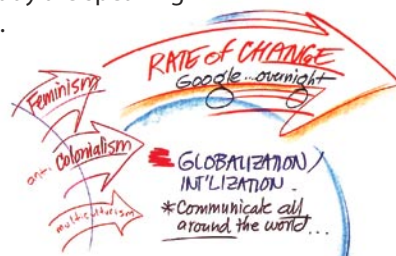 RATE of CHANGE
Google...overnight
Feminism
anti
Colonialism
multiculturism
GLOBALIZATION/
INT'LIZATION.
*Communicate all
around the world...